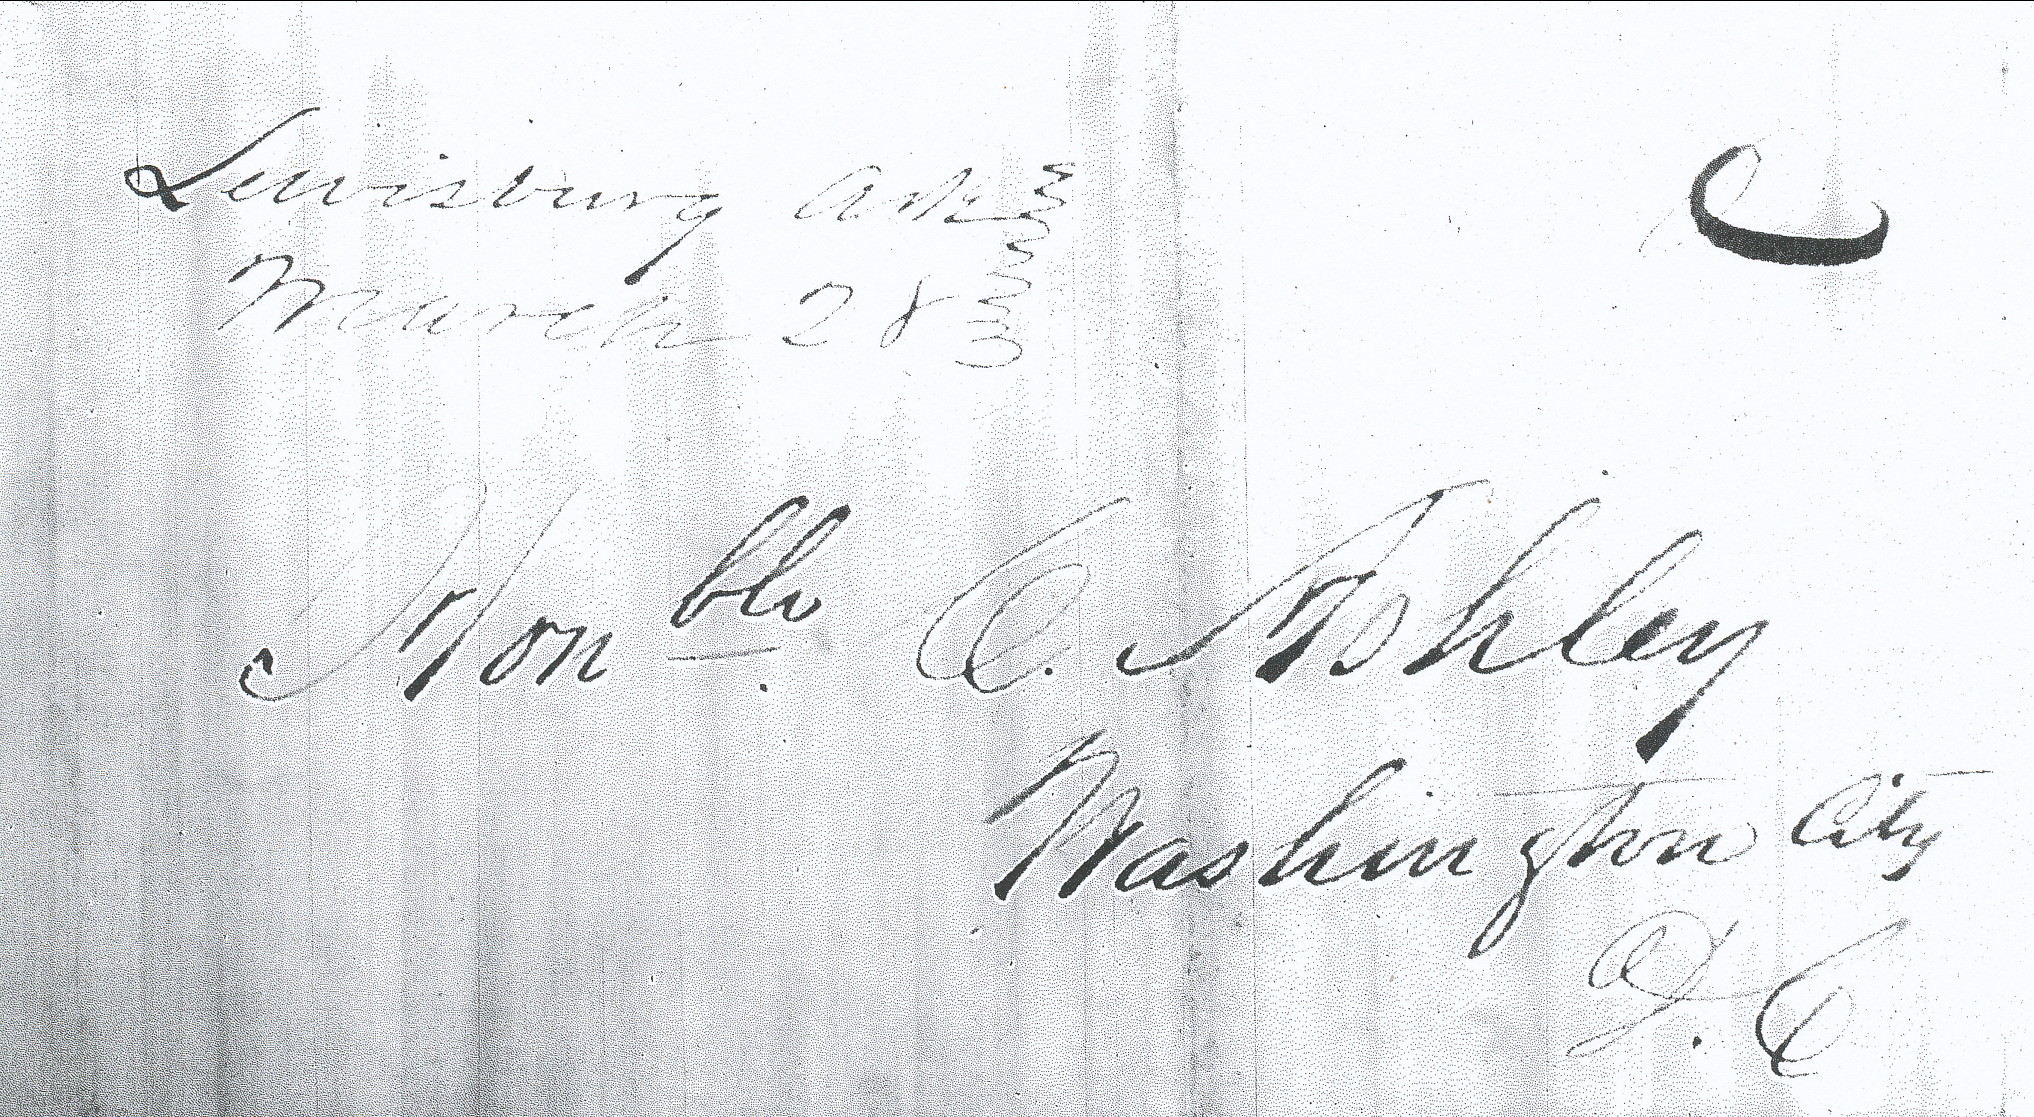 Lewisburg Ark
March 28
Honble. C. Ashley
Washington City
D. C